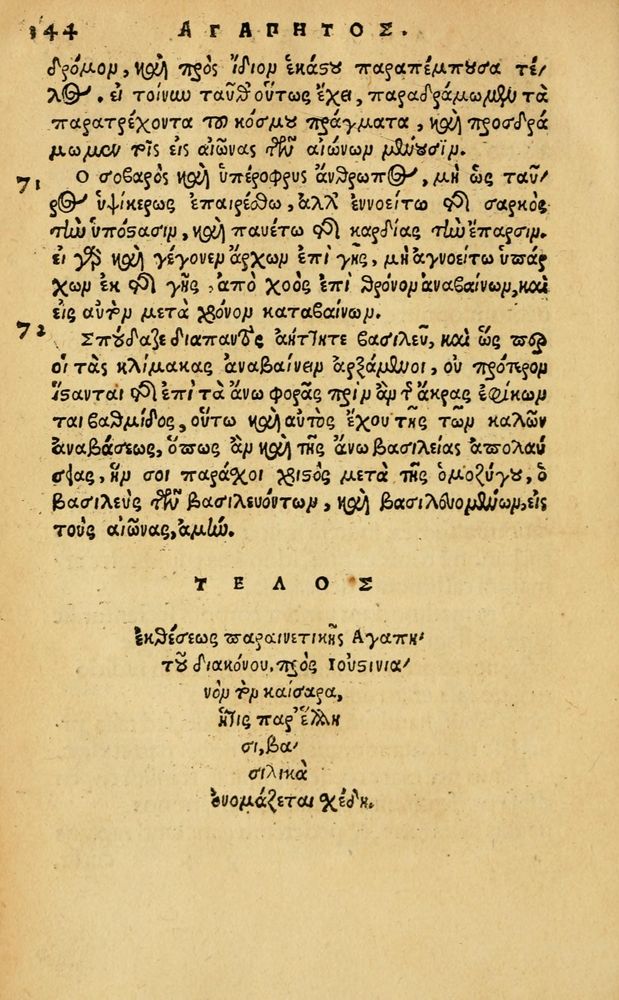 144 ΑΓΑΠΗΤΟΣ.
δρόμον, καὶ πρὸς ἴδιον ἑκάστου παραπέμπουσα τέ-
λος. εἰ τοίνυν ταῦθ᾽ οὕτως ἔχει, παραδράμωμεν τὰ
παρατρέχοντα τοῦ κόσμου πράγματα, καὶ προσδρά
μωμεν τοῖς εἰς αἰῶνας τῶν αἰώνων μένουσιν.
71 Ο σοβαρὸς καὶ ὑπέροφρυς ἄνθρωπος, μὴ ὡς ταῦ-
ρος ὑψίκερως ἐπαιρέσθω, ἀλλ᾽ ἐννοείτω τῆς σαρκὸς
τὴν ὑπόστασιν, καὶ παυέτω τῆς καρδίας τὴν ἔπαρσιν.
εἰ γὰρ καὶ γέγονεν ἄρχων ἐπὶ γῆς, μὴ ἀγνοείτω ὑπάρ
χων ἐκ τῆς γῆς, ἀπὸ χοὸς ἐπὶ θρόνον ἀναβαίνων, καὶ
εἰς αὐτὸν μετὰ χρόνον καταβαίνων.
72 Σπούδαζε διαπαντὸς ἀήττητε βασιλεῦ, καὶ ὥς περ
οἱ τὰς κλίμακας ἀναβαίνειν ἀρξάμενοι, οὐ πρότερον
ἵστανται τῆς ἐπὶ τὰ ἄνω φορᾶς πρὶν ἂν τῆς ἄκρας ἐφίκων
ται βαθμίδος, οὕτω καὶ αὐτὸς ἔχου τῆς τῶν καλῶν
ἀναβάσεως, ὅπως ἂν καὶ τῆς ἄνω βασιλείας ἀπολαύ
σῃας, ἥν σοι παράσχοι χριστὸς μετὰ τῆς ὁμοζύγου, ὁ
βασιλεὺς τῶν βασιλευόντων, καὶ βασιλευομένων, εἰς
τοὺς αἰῶνας, ἀμήν.
ΤΕΛΟΣ
ἐκθέσεως παραινετικῆς Αγαπη-
τοῦ διακόνου, πρὸς Ιουστινια-
νὸν τὸν καίσαρα,
ἥτις παρ᾽ Ἕλλη
σι, βα-
σιλικὰ
ὀνομάζεται σχέδη.